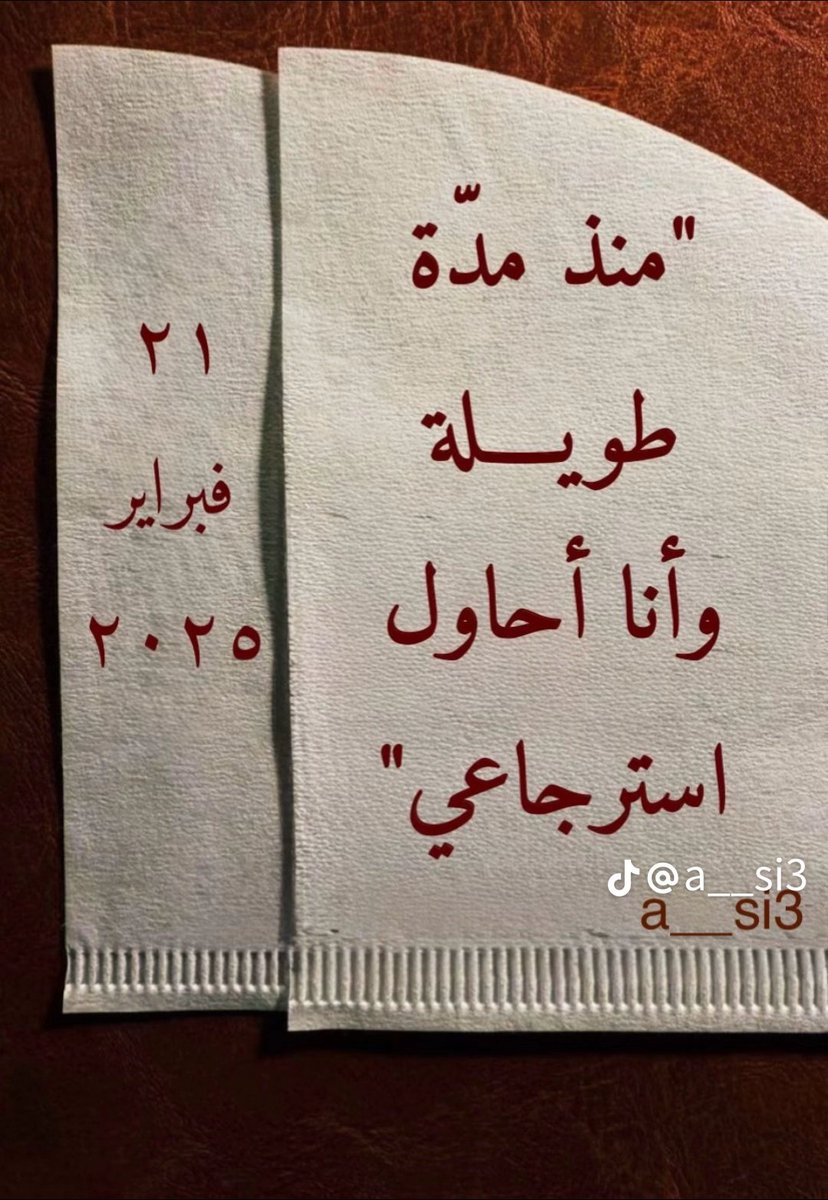 "منذ مدّة
طويـلة
وأنا أحاول
استرجاعي"
٢١
فبراير
٢٠٢٥
@a__si3
a__si3